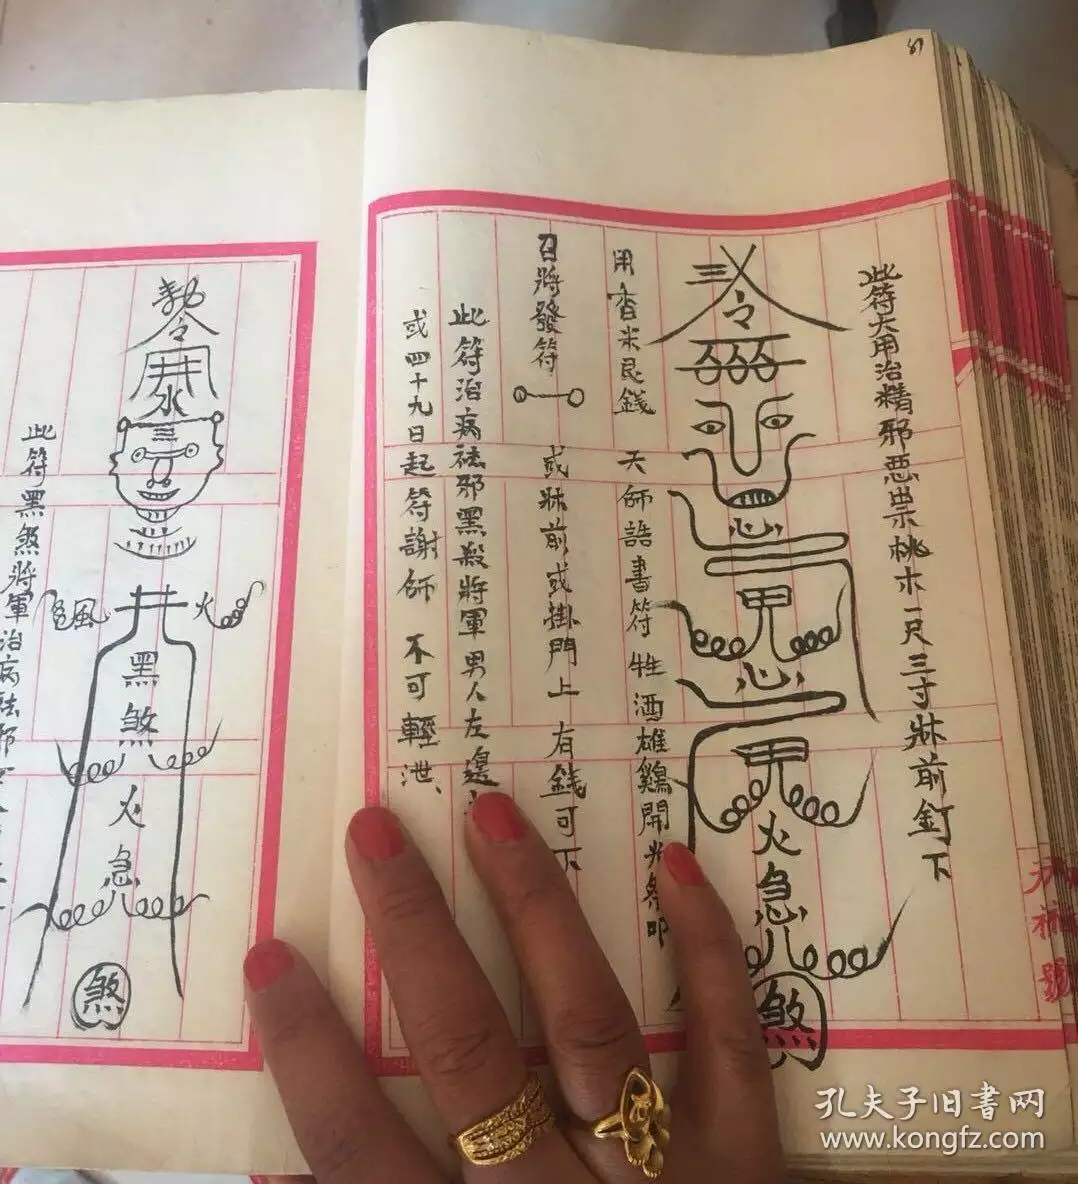 67
此符大用治精邪惡祟桃木一尺三寸牀前釘下
令
心
甲
心
火
急
煞
用香米艮錢 天師誥書符 牲酒雄鷄開光
召將發符 或牀前或掛門上 有錢可下
此符治病祛邪黑殺將軍男人左邊
或四十九日起符謝師 不可輕泄、
令
井
水
井
風
火
黑
煞
火
急
煞
此符黑煞將軍治病祛邪
號
孔夫子旧書网
www.kongfz.com